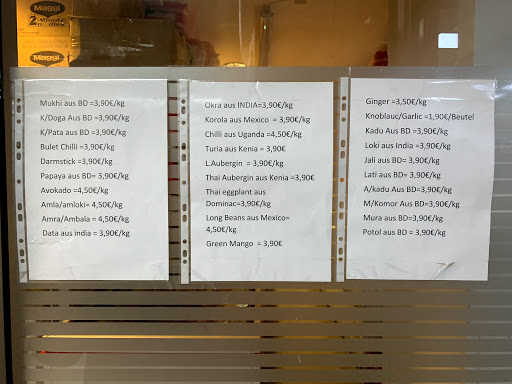 Maggi
2-Minute
Noodles
Maggi
Mukhi aus BD =3,90€/kg
K/Doga Aus BD =3,90€/kg
K/Pata aus BD =3,90€/kg
Bulet Chilli =3,90€/kg
Darmstick =3,90€/kg
Papaya aus BD= 3,90€/kg
Avokado =4,50€/kg
Amla/amloki= 4,50€/kg
Amra/Ambala = 4,50€/kg
Data aus india = 3,90€/kg
Okra aus INDIA=3,90€/kg
Korola aus Mexico = 3,90€/kg
Chilli aus Uganda =4,50€/kg
Turia aus Kenia = 3,90€
L.Aubergin = 3,90€/kg
Thai Aubergin aus Kenia =3,90€
Thai eggplant aus
Dominac=3,90€/kg
Long Beans aus Mexico=
4,50€/kg
Green Mango = 3,90€
Ginger =3,50€/kg
Knoblauc/Garlic =1,90€/Beutel
Kadu Aus BD =3,90€/kg
Loki aus India =3,90€/kg
Jali aus BD= 3,90€/kg
Lati aus BD = 3,90€/kg
A/kadu Aus BD=3,90€/kg
M/Komor Aus BD =3,90€/kg
Mura aus BD=3,90€/kg
Potol aus BD = 3,90€/kg